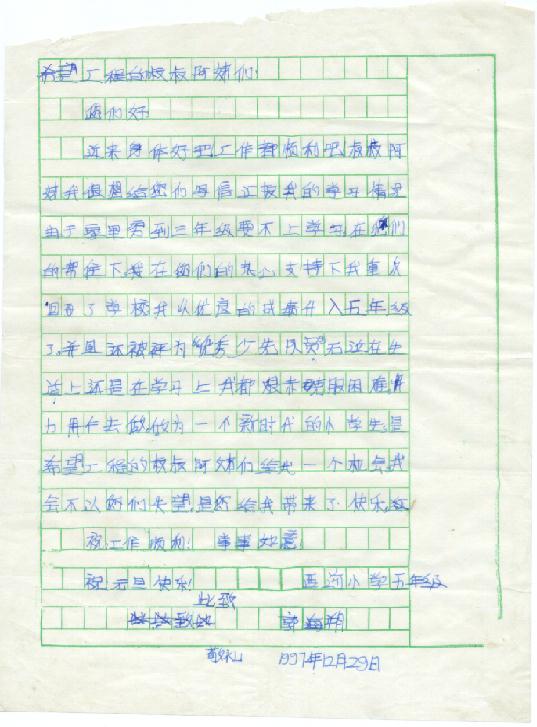 希望工程的叔叔阿姨们:
您们好
近来身体好吧工作都顺利吧叔叔阿
姨我很想给您们写信汇报我的学习情况
由于家里穷到三年级要不上学在您们
的帮住下我在您们的关心支持下我重
回到了学校我以优良的成责升入五年级
了.并且还被评为"优秀少先队员"无论在生
活上还是在学习上我都
力去做.做为一个新时代的小学生是
希望工程的叔叔阿姨们给我一个机会我
会不以您们失望.是您给我带来了快乐.
祝工作顺利! 事事如意
祝元旦快乐! 西河小学五年级
此致
1997年12月29日